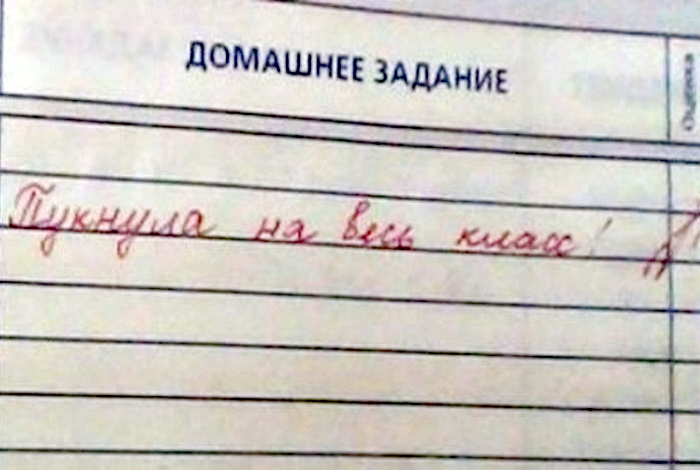 ДОМАШНЕЕ ЗАДАНИЕ
Оценка
Пукнула на весь класс!